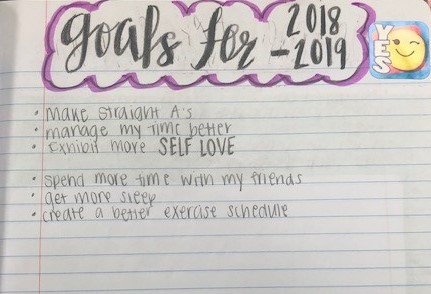 goals for 2018
-2019
YES
• Make straight A's
• manage my time better
• Exhibit more SELF LOVE
• spend more time with my friends
• get more sleep
• create a better exercise schedule